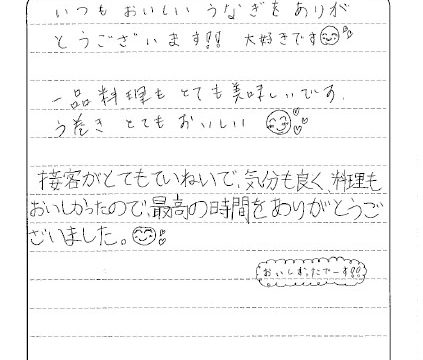 いつもおいしいうなぎをありが
とうございます!! 大好きです
一品料理もとても美味しいです.
う巻きとてもおいしい
接客がとてもていねいで、気分も良く、料理も
おいしかったので、最高の時間をありがとうご
ざいました。
おいしかったでーす!!